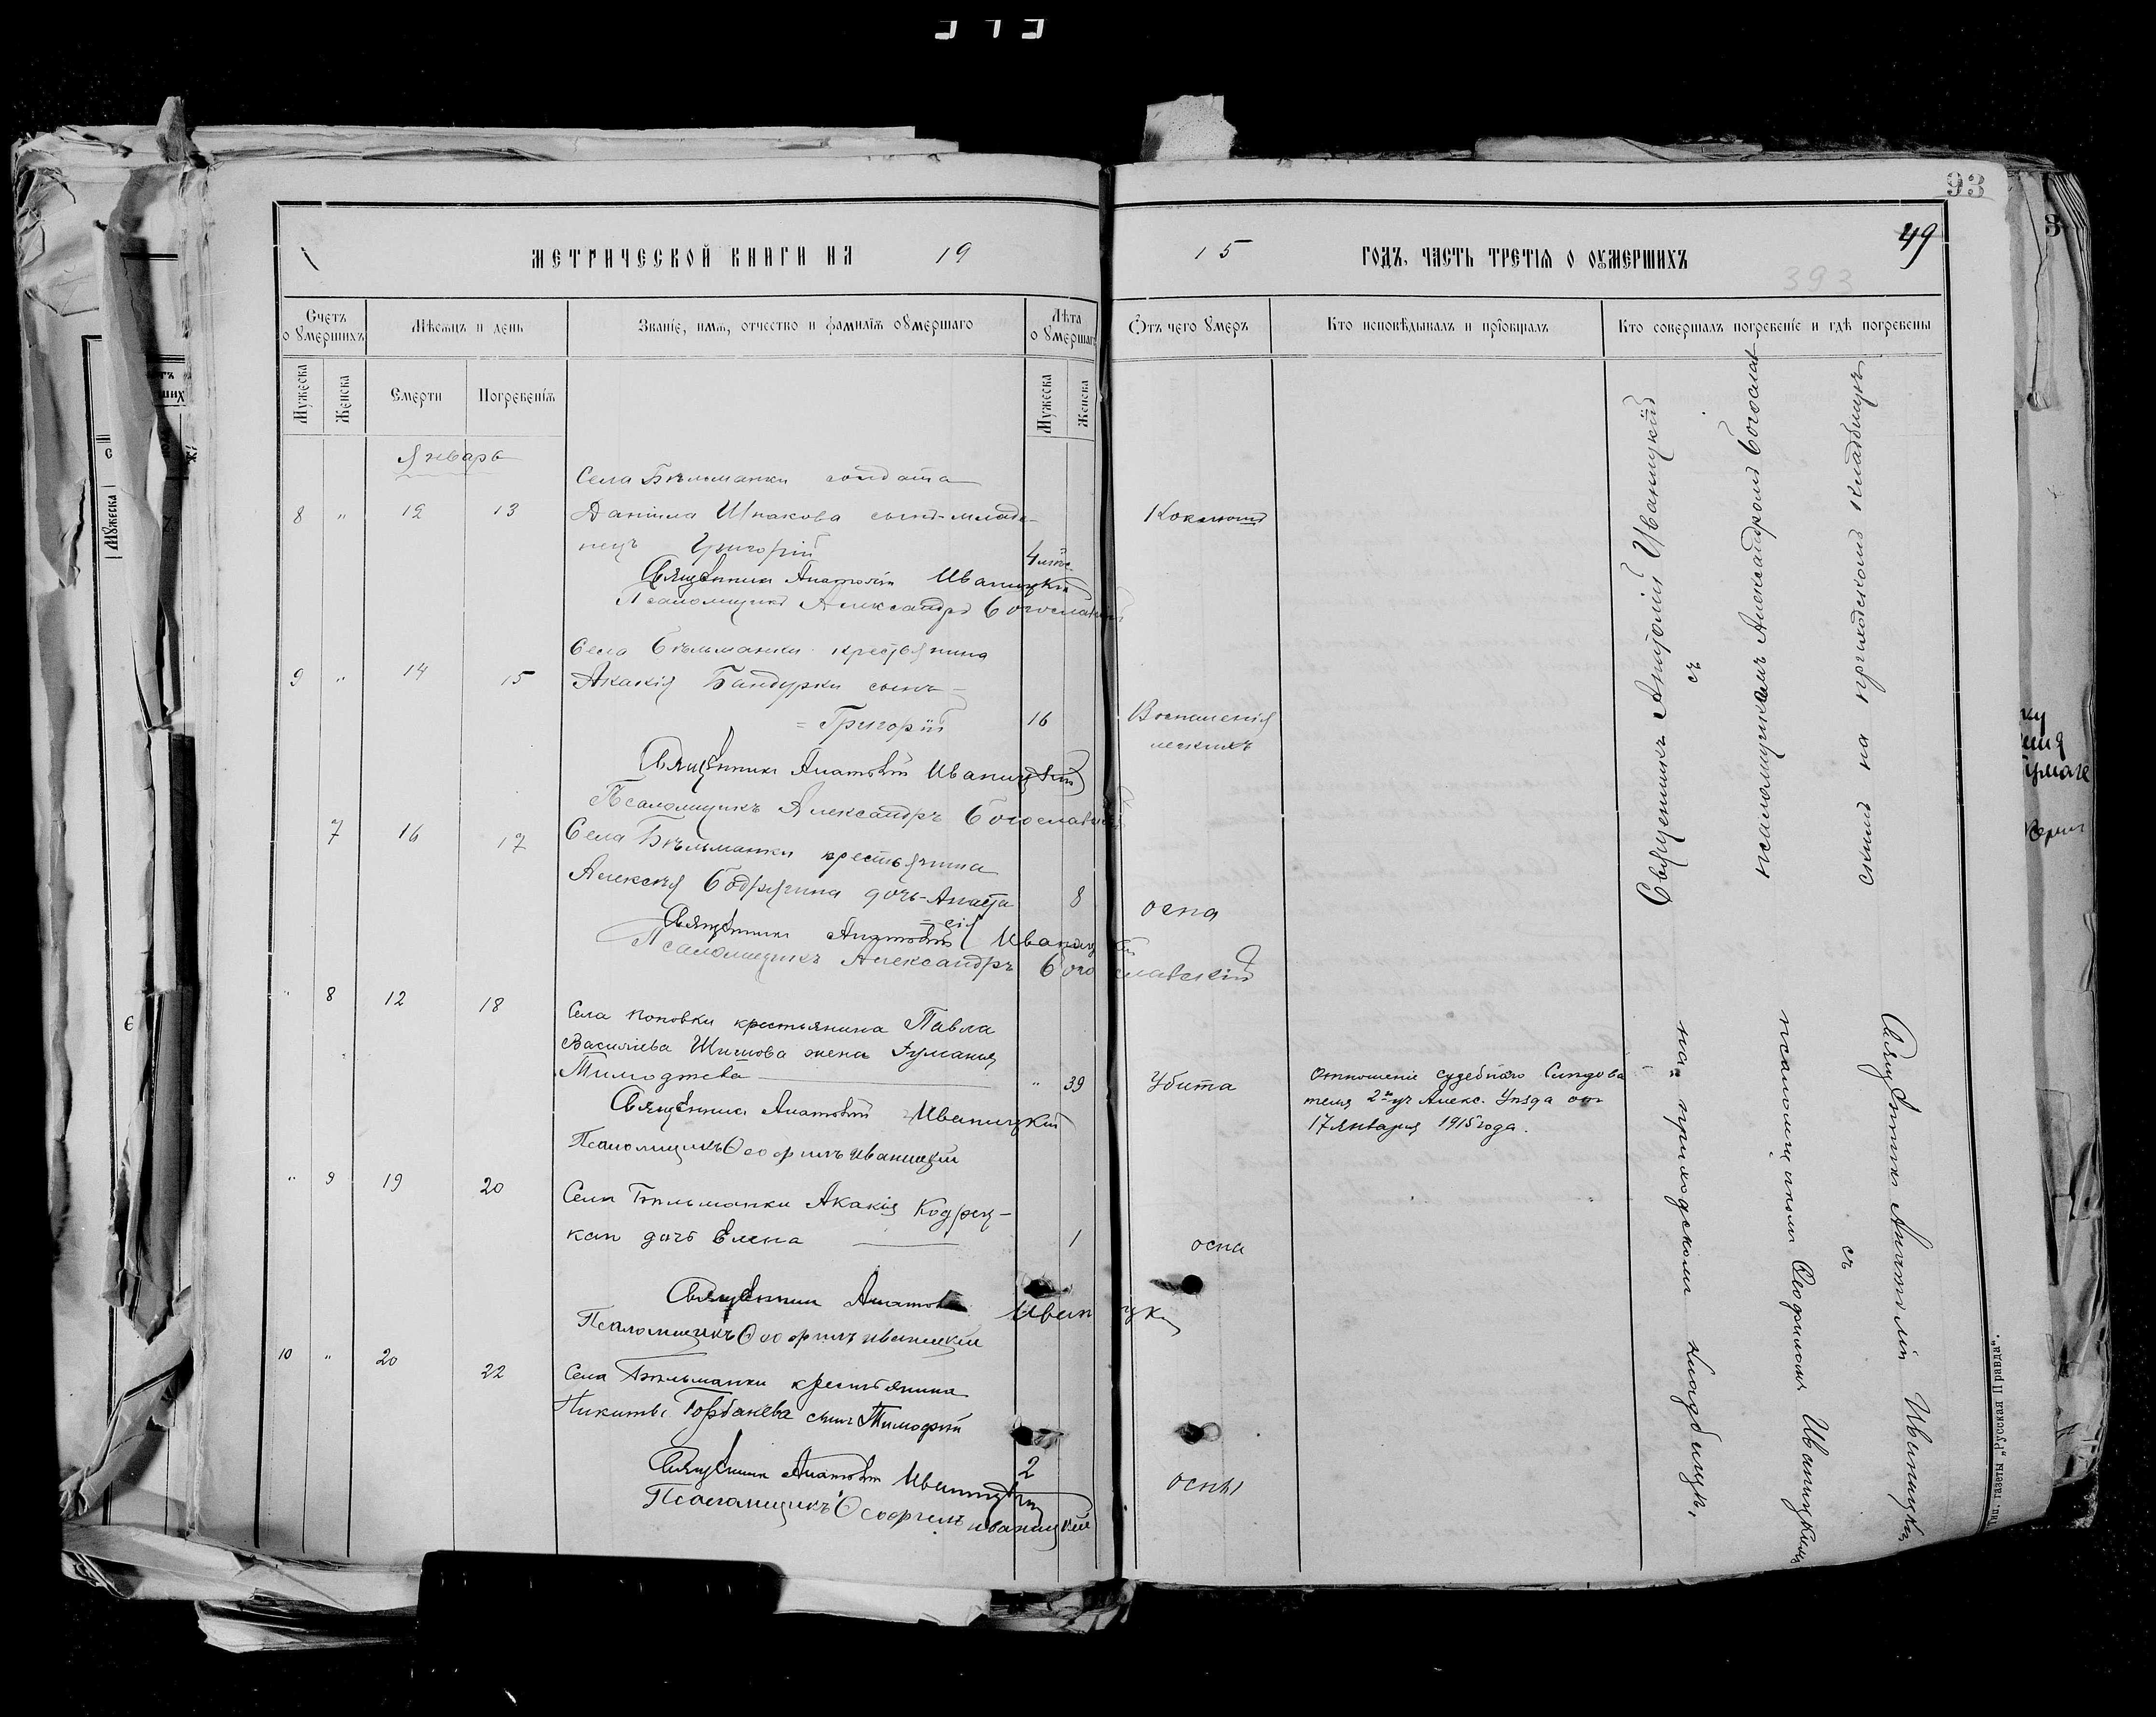 93
МЕТРИЧЕСКОЙ КНИГИ НА 19
15 ГОДЪ, ЧАСТЬ ТРЕТІЯ О ОУМЕРШИХЪ
49
393
Счетъ оумершихъ
Мѣсяцъ и день
Званіе, имя, отчество и фамилія оумершаго
Лѣта оумершаго
Отъ чего умеръ
Кто исповѣдывалъ и пріобщалъ
Кто совершалъ погребеніе и гдѣ погребены
Мужеска
Женска
Смерти
Погребенія
Мужеска
Женска
Январь
Села Бѣльманки солдата
8 " 12 13 Даніила Шпакова сынъ-младе-
нецъ Григорій
4 Коклюшъ
Священникъ Анатолій Иваницкій
Псаломщикъ Александръ Богославскій
Села Бѣльманки крестьянина
9 " 14 15 Акакія Бандурки сынъ
= Григорій 16 Воспаленія
легкихъ
Священникъ Анатолій Иваницкій
Псаломщикъ Александръ Богославскій
7 16 17 Села Бѣльманки крестьянина
Алексѣя дочь-Анаста
=сія 8 оспа
Священникъ Анатолій Иваницкій
Псаломщикъ Александръ Богославскій
" 8 12 18 Села Поповки крестьянина Павла
Василіева жена
" 39 Убита
Отношеніе судебнаго Слѣдова
теля 2го уч Алекс. Уѣзда отъ
17 Января 1915 года.
Священникъ Анатолій Иваницкій
Псаломщикъ Ѳеофилъ Иваницкій
" 9 19 20 Села Бѣльманки Акакія
дочь Елена 1 оспа
Священникъ Анатолій Иваницкій
Псаломщикъ Ѳеофилъ Иваницкій
10 " 20 22 Села Бѣльманки крестьянина
Никиты Горбачева сынъ Тимофей
2 оспы
Священникъ Анатолій Иваницкій
Псаломщикъ Ѳеофилъ Иваницкій
Священникъ Анатолій Иваницкій
съ
псаломщикомъ Александромъ Богослав-
скимъ на приходскомъ кладбищѣ
Священникъ Анатолій Иваницкій
съ
псаломщикомъ Ѳеофиломъ Иваницкимъ
на приходскомъ кладбищѣ
Тип. газеты „Русская Правда“.